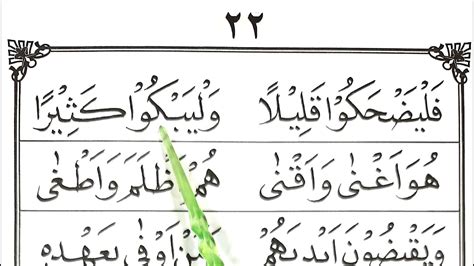 ٢٢
فَلْيَضْحَكُوْا قَلِيْلًا وَلْيَبْكُوْا كَثِيْرًا
هُوَ اَغْنٰى وَاَقْنٰى هُمْ اَظْلَمَ وَاَطْغٰى
وَيَقْبِضُوْنَ اَيْدِيَهُمْ اَوْفٰى بِعَهْدِهٖ